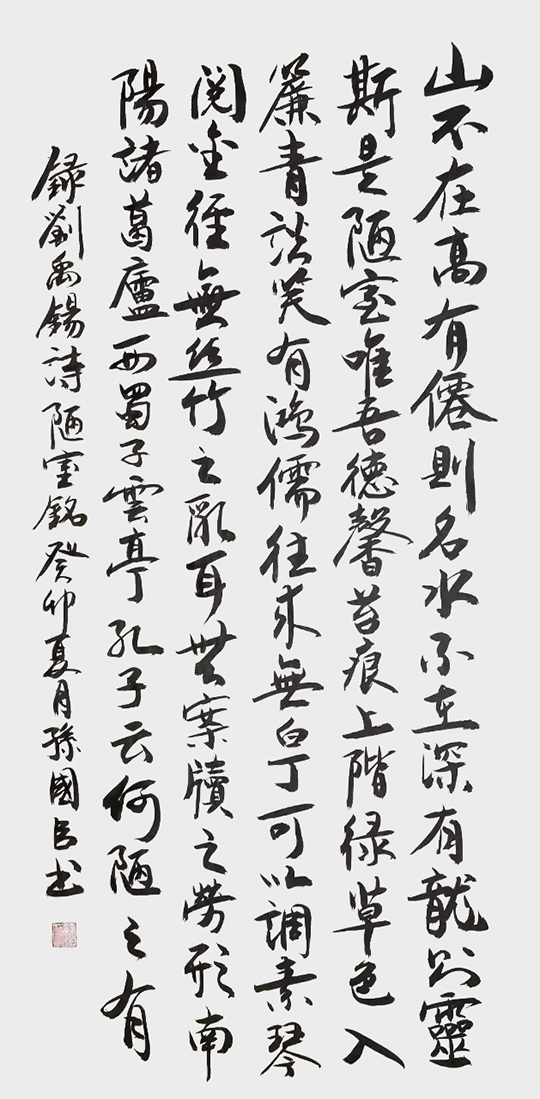 山不在高有僊則名水不在深有龍則靈
斯是陋室唯吾德馨苔痕上階緑草色入
簾青談笑有鴻儒往来無白丁可以調素琴
閲金徑無丝竹之亂耳無案牘之勞形南
陽諸葛廬西蜀子雲亭孔子云何陋之有
録劉禹錫詩陋室銘癸卯夏月孫國书